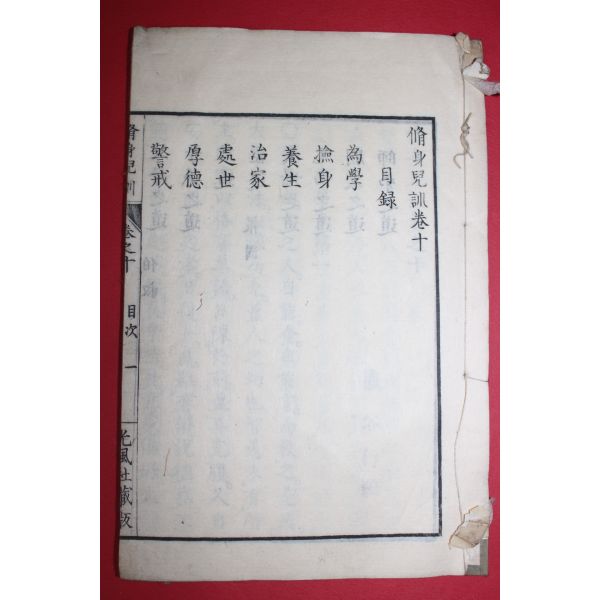 脩身兒訓卷十
目録
為學
撿身
養生
治家
處世
厚德
警戒
脩身兒訓
卷之十
目次
一
光風社藏版